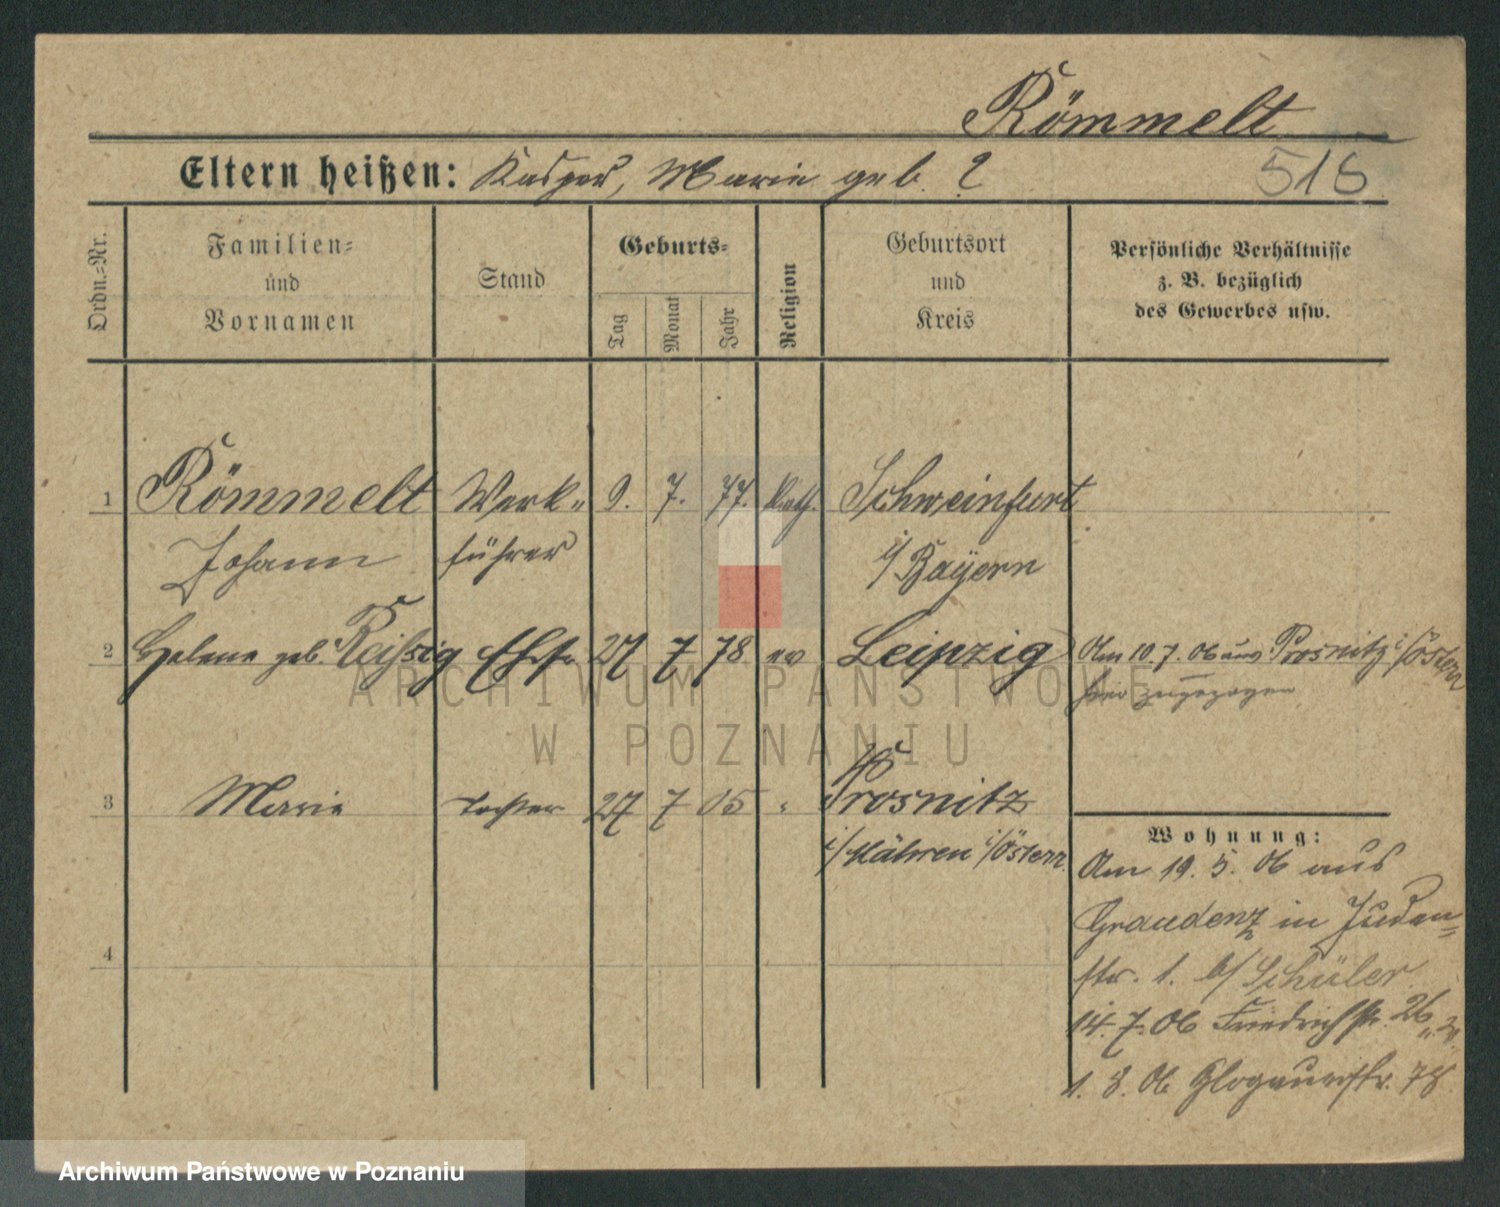 Römmelt
Eltern heißen: Kasper, Marie geb. ?
518
Ordn.-Nr.
Familien-
und
Vornamen
Stand
Geburts-
Tag
Monat
Jahr
Religion
Geburtsort
und
Kreis
Persönliche Verhältnisse
z. B. bezüglich
des Gewerbes usw.
1 Römmelt Werk- 9. 7. 77. kath. Schweinfurt
Johann führer i/ Bayern
2 Helene geb. Reissig Ehefr. 27 7 78 ev Leipzig
Am 10.7.06 aus Prosnitz i/Österr
hier zugezogen
3 Marie Tochter 27 7 05 " Prosnitz
i/ Mähren i/Österr.
4
Wohnung:
Am 19. 5. 06 aus
Graudenz in Juden-
str. 1. b/ Schüler
14. 7. 06 Friedrichstr. 26
1. 8. 06 Glogauerstr. 78
ARCHIWUM PAŃSTWOWE
W POZNANIU
Archiwum Państwowe w Poznaniu